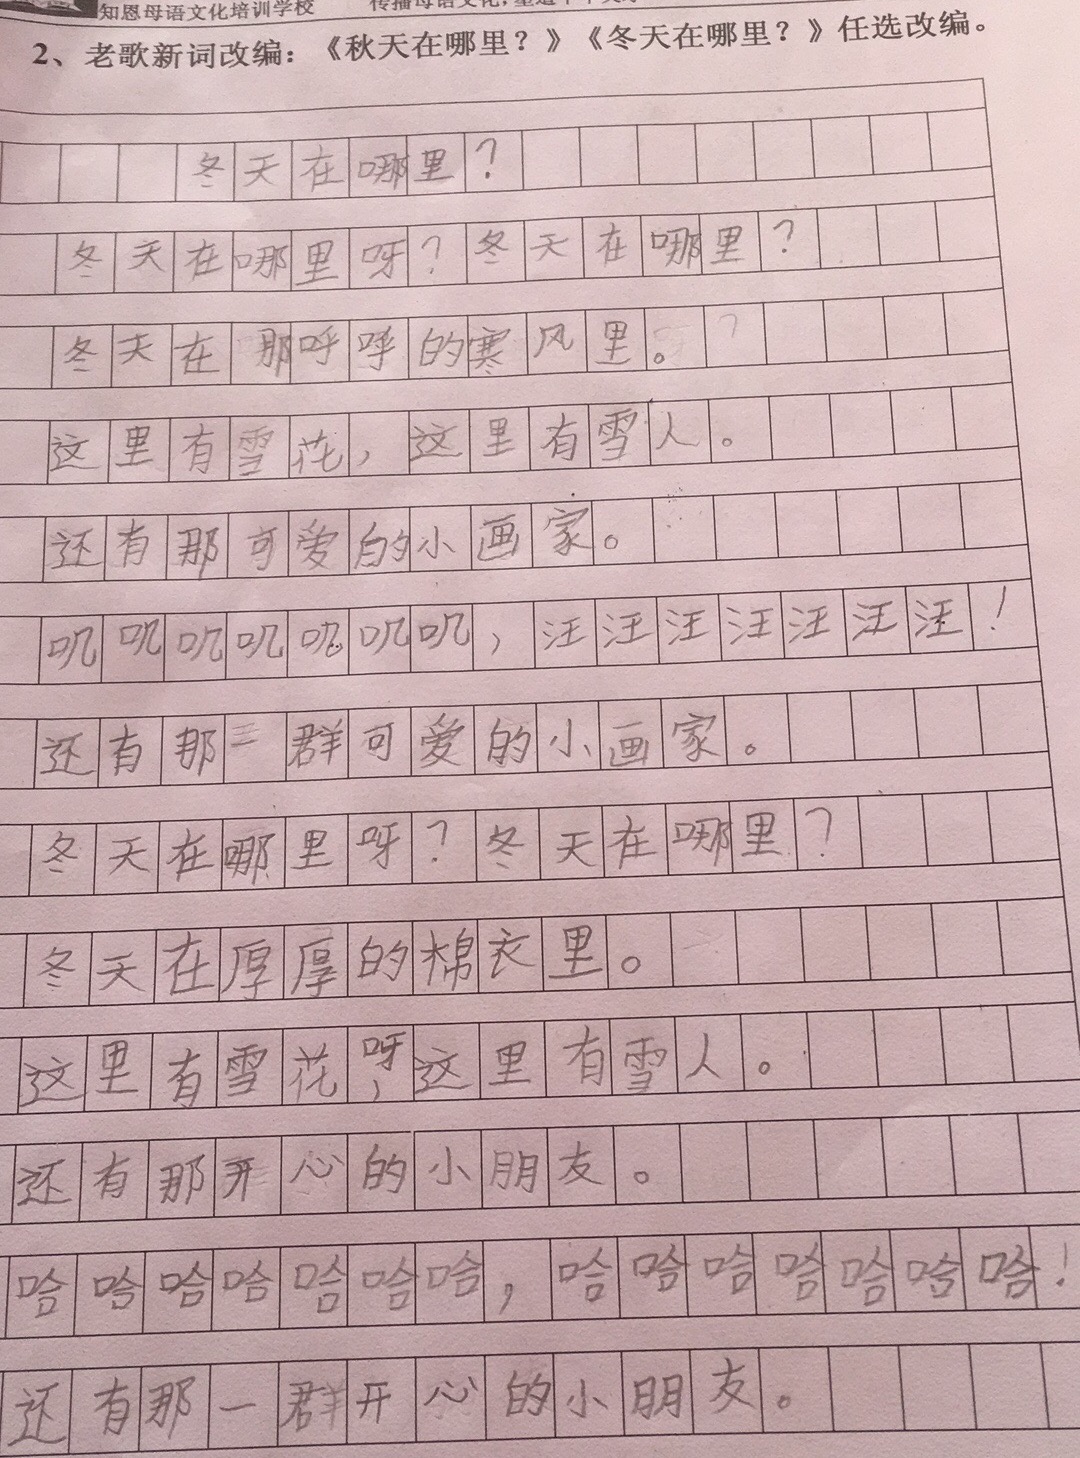 知恩母语文化培训学校
2、老歌新词改编：《秋天在哪里？》《冬天在哪里？》任选改编。
冬天在哪里？
冬天在哪里呀？冬天在哪里？
冬天在那呼呼的寒风里。
这里有雪花，这里有雪人。
还有那可爱的小画家。
叽叽叽叽叽叽叽，汪汪汪汪汪汪汪！
还有那一群可爱的小画家。
冬天在哪里呀？冬天在哪里？
冬天在厚厚的棉衣里。
这里有雪花呀，这里有雪人。
还有那开心的小朋友。
哈哈哈哈哈哈哈，哈哈哈哈哈哈哈！
还有那一群开心的小朋友。